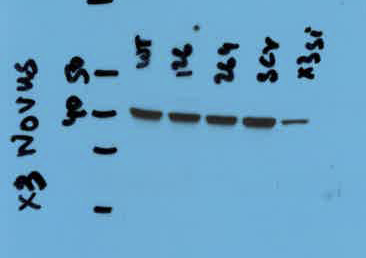 X3 Novus
50
40
WT
126
264
SCr
X3Si